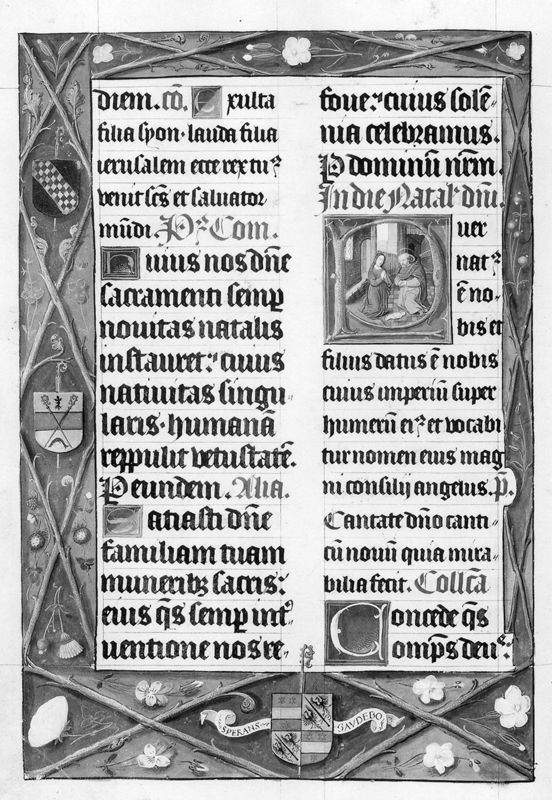 diem. cō. Exulta
filia syon. lauda filia
ierusalem ecce rex tuꝰ
venit scs et saluator
mūdi. Pꝰ Com.
Huius nos dn̄e
sacramenti semp
nouitas natalis
instauret: cuius
natiuitas singu-
laris. humanā
reppulit vetustatē.
P eundem. Alia.
Satiasti dn̄e
familiam tuam
muneribꝫ sacris:
eius q̄s semp int-
uentione nos re-
foue: cuius solē-
nia celebramus.
P dominū nr̄m.
In die Natal. dn̄i.
Puer
natꝰ
ē no-
bis et
filius datus ē nobis
cuius imperiū super
humerū eiꝰ et vocabi
tur nomen eius mag
ni consilij angelus. p̄.
Cantate dn̄o canti-
cū nouū quia mira-
bilia fecit. Coll̄ca
Concede q̄s
omp̄s deus:
SPERANS GAVDEBO